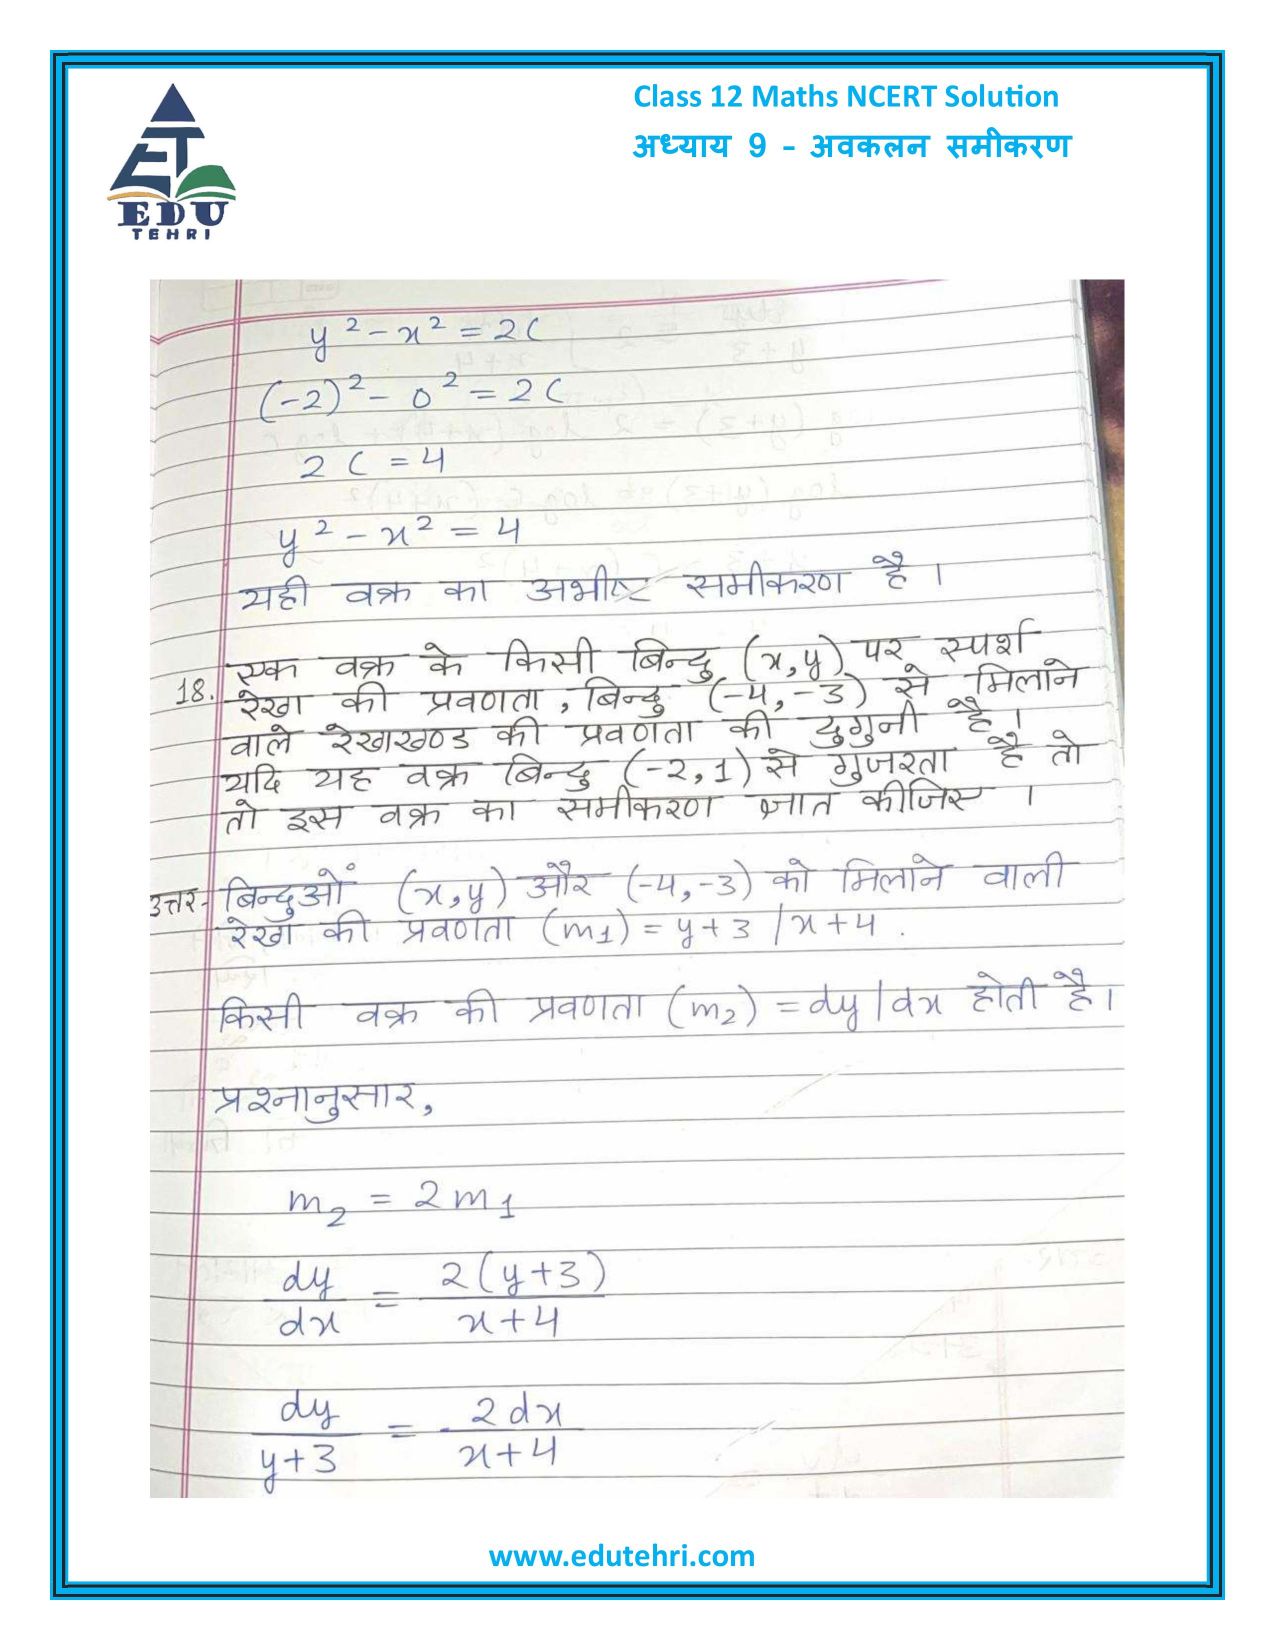 Class 12 Maths NCERT Solution
अध्याय 9 - अवकलन समीकरण
EDU
TEHRI
y² - x² = 2C
(-2)² - 0² = 2C
2C = 4
y² - x² = 4
यही वक्र का अभीष्ट समीकरण है।
18. एक वक्र के किसी बिन्दु (x,y) पर स्पर्श
रेखा की प्रवणता, बिन्दु (-4,-3) से मिलाने
वाले रेखाखण्ड की प्रवणता की दुगुनी है।
यदि यह वक्र बिन्दु (-2,1) से गुजरता है तो
तो इस वक्र का समीकरण ज्ञात कीजिए।
उत्तर- बिन्दुओं (x,y) और (-4,-3) को मिलाने वाली
रेखा की प्रवणता (m₁) = y+3/x+4.
किसी वक्र की प्रवणता (m₂) = dy/dx होती है।
प्रश्नानुसार,
m₂ = 2m₁
dy/dx = 2(y+3)/x+4
dy/y+3 = 2dx/x+4
www.edutehri.com